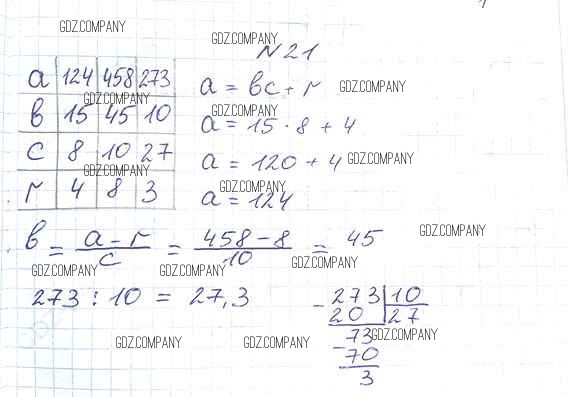 GDZ.COMPANY
GDZ.COMPANY
N21
a 124 458 273
a = bc + r GDZ.COMPANY
GDZ.COMPANY
GDZ.COMPANY
b 15 45 10
a = 15 · 8 + 4
c 8 10 27
a = 120 + 4 GDZ.COMPANY
GDZ.COMPANY
GDZ.COMPANY
r 4 8 3
a = 124
b = a - r / c = 458 - 8 / 10 = 45 GDZ.COMPANY
GDZ.COMPANY GDZ.COMPANY GDZ.COMPANY
273 : 10 = 27,3
- 273 | 10
20 | 27
- 73 GDZ.COMPANY
70
3
GDZ.COMPANY GDZ.COMPANY